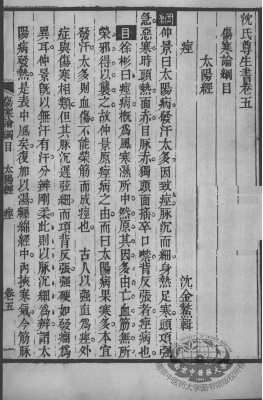 沈氏尊生書卷五
傷寒論綱目
沈金鰲輯
太陽經
痙
綱仲景曰太陽病發汗太多因致痙脈沉而細身熱足寒頸項強
急惡寒時頭熱面赤目脈赤獨頭面搖卒口噤背反張者痙病也
目徐彬曰痙病概為風寒濕所中然原其因多由亡血筋無所
榮邪得以襲之故仲景原痙病之由而曰太陽病果寒多本宜
發汗太多則血傷不能榮筋而成痙也 古人以強直為痙外
症與傷寒相類但其脈沉遲弦細而項背反張強硬如發癇為
異耳仲景既以無汗有汗分辨剛柔此則以脈沉細為辨謂太
陽病發熱是表中風矣復加以濕纏綿經中內挾寒氣令筋脈
傷寒論綱目 太陽經 痙 卷五